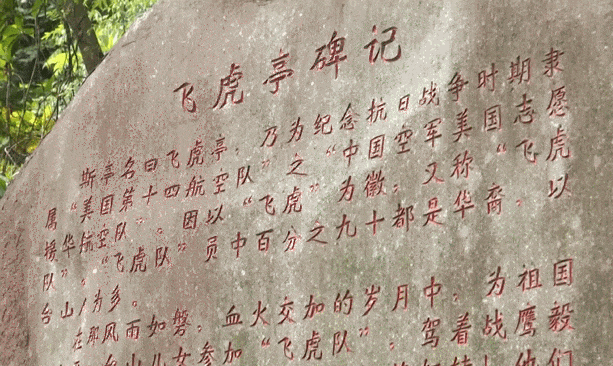 飞虎亭碑记
斯亭名曰飞虎亭，乃为纪念抗日战争时期隶
属“美国第十四航空队”之“中国空军美国志愿
援华航空队”。因以“飞虎”为徽，又称“飞虎
队”。“飞虎队”员中百分之九十都是华裔，以
台山人为多。
在那风雨如磐，血火交加的岁月中，为祖国
台山儿女参加“飞虎队”，驾着战鹰毅
他们